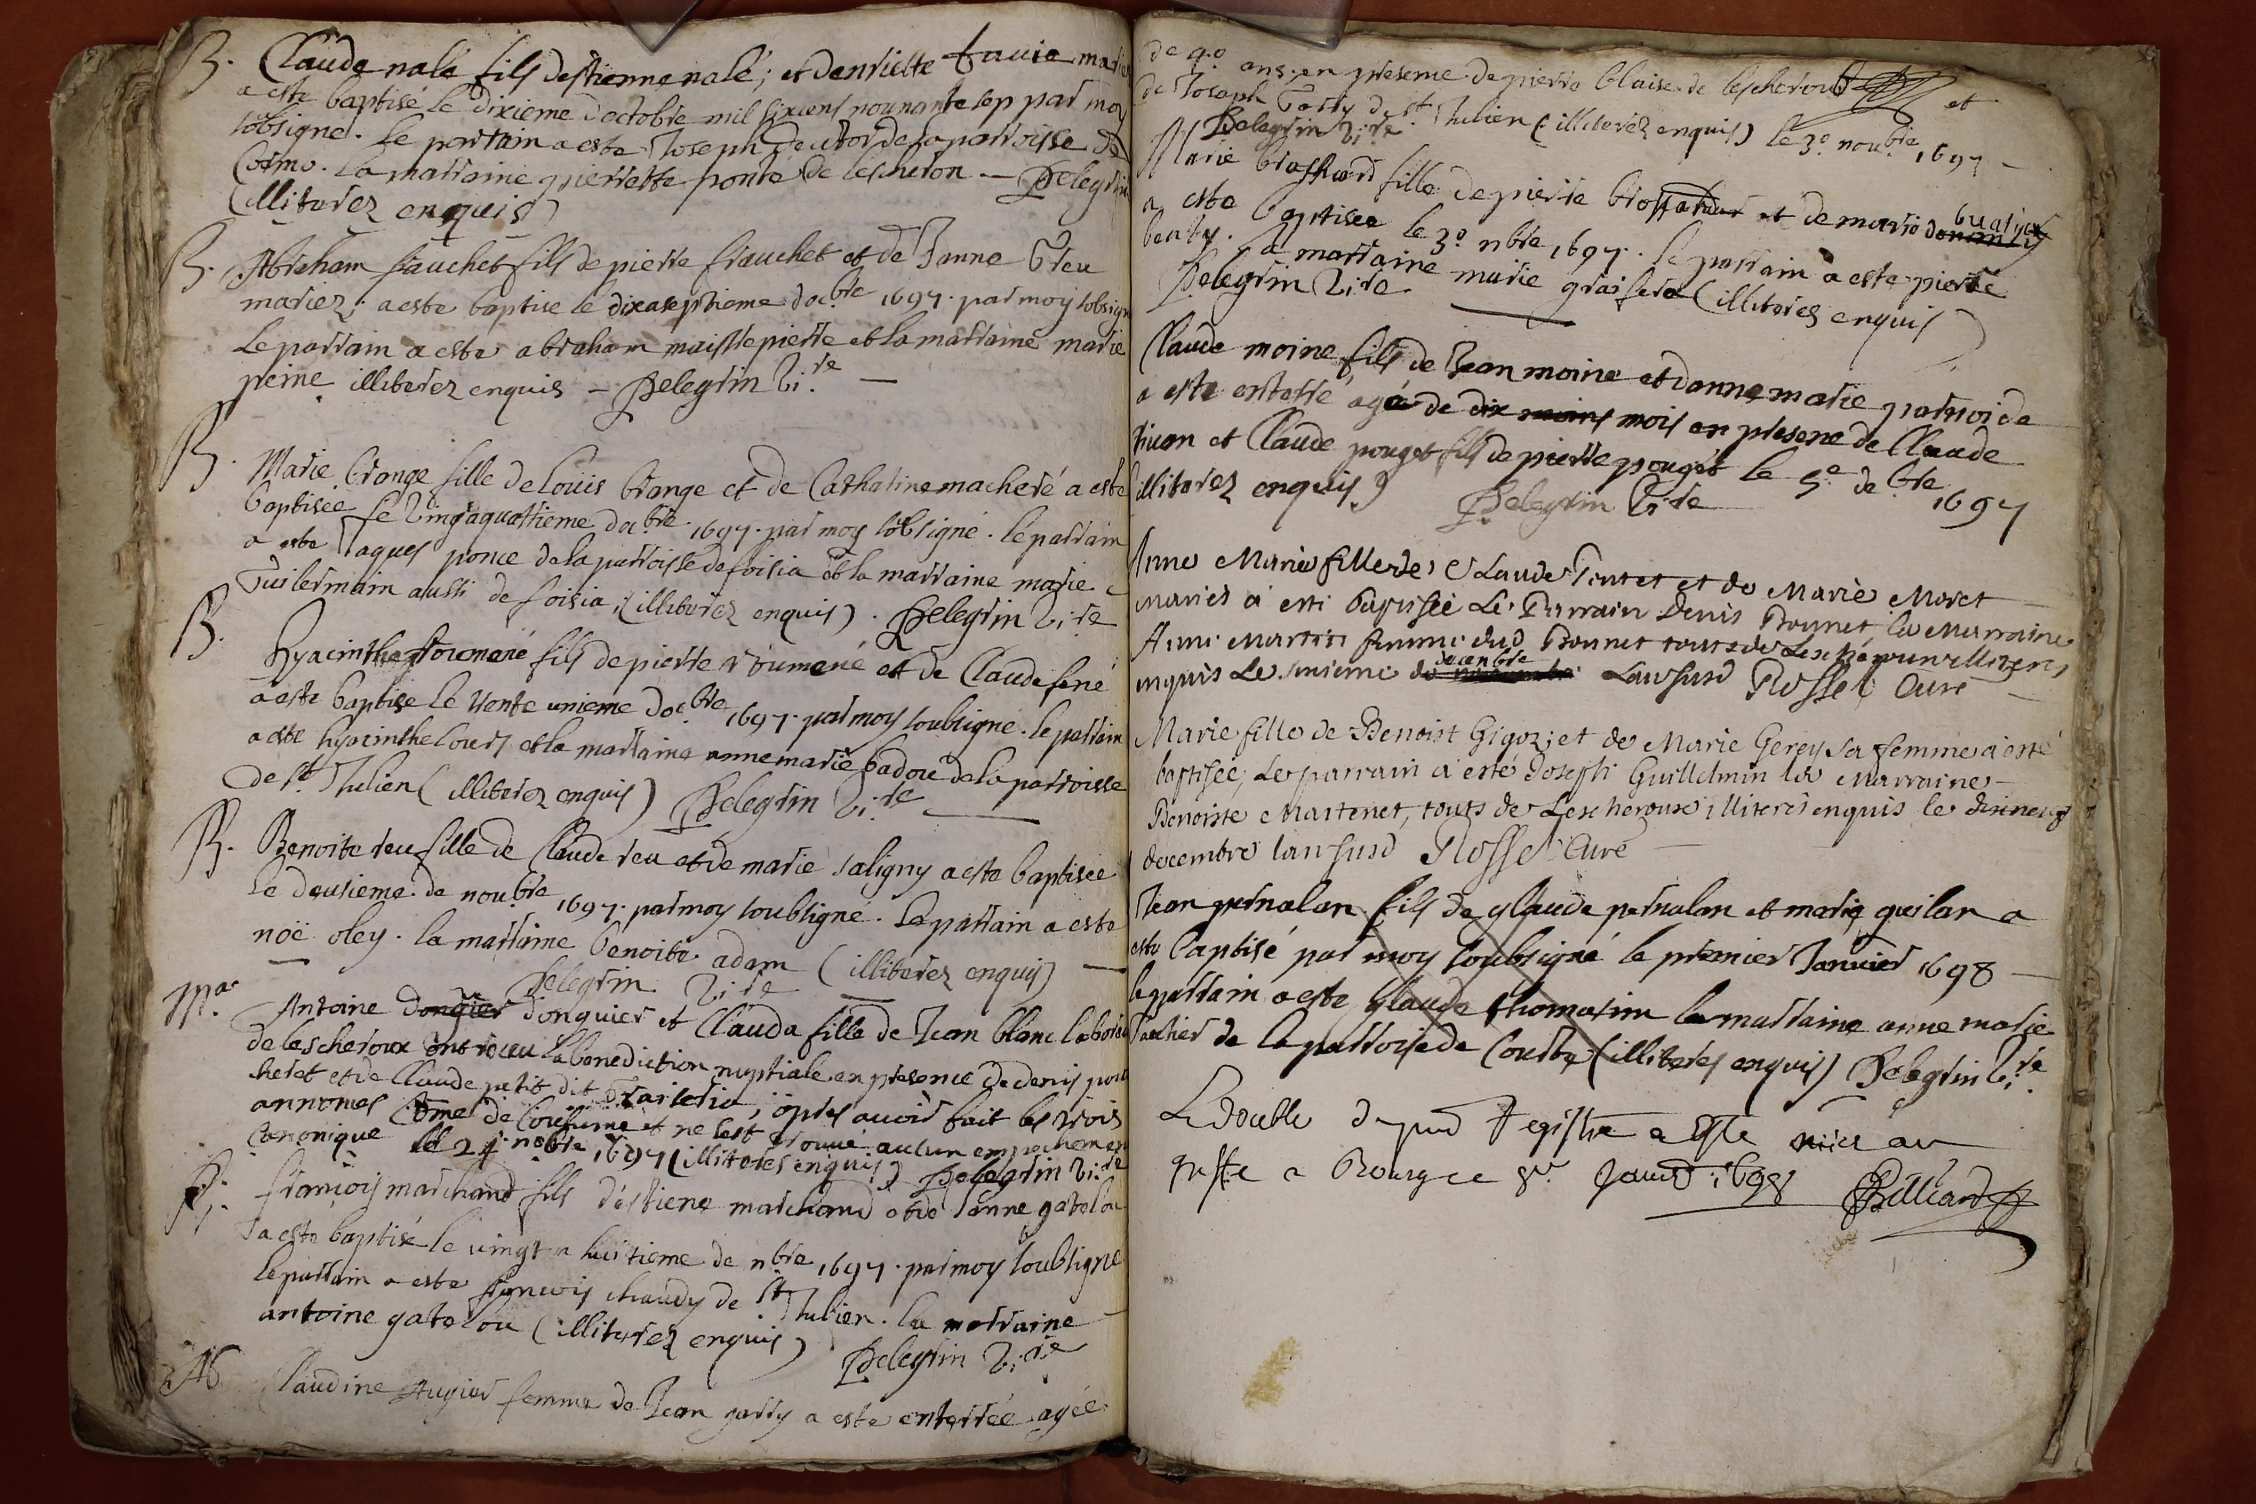 B. Claude nalé fils destienne nalé; et denriette favie mari
a este baptisé le dixieme doctobre mil sixcens nonnante sep par moy
sobsigne. le parrain a este Joseph de la parroisse de
Cosme. la marraine pierrette ponte de lescheron — Pelegrin
(illiterez enquis)
B. Abraham frauchet fils de pierre frauchet et de Janne Greu
mariez; a este baptise le dixaseptieme docbre 1697. par moy sobsign
Le parrain a este abraham maistrepierre et la marraine marie
preine illiterez enquis — Pelegrin Vire —
B. Marie brange fille de Louis brange et de Catharine macheré a este
baptisee le vingtaquattrieme docbre 1697. par moy sobsigné. le parrain
a este Jaques ponce de la parroisse de loisia et la marraine marie
Guilermain aussi de loisia, (illiterez enquis). Pelegrin Vire
B. Hyacinthe fils de pierre roumené et de Claude fené
a este baptise le trente unieme docbre 1697. par moy soubsigné. le parrain
a este hyacinthe lours et la marraine anne marie badoue de la parroisse
de st. Julien (illiterez enquis) Pelegrin Vire
B. Benoite reu fille de Claude reu et de marie saligny a este baptisée
le deusieme de noubre 1697. par moy soubsigné. Le parrain a este
noë oley. la marraine benoite adam (illiterez enquis) —
Pelegrin Vire
Ma. Antoine donguier donguier et Clauda fille de Jean blanc
de lescheroux ont receu la benediction nuptiale en presence de denis pon
cheret et de Claude petit dit, apres avoir fait les trois
annonces Come de Coutume et ne sest trouvé aucun empechement
Canonique le 24 nobre 1697 (illiterez enquis) Pelegrin Vire
B. francois marchand fils d'estiene marchand et de Janne gatelou
a este baptisé le vingt a huitieme de nbre 1697. par moy soubsigne
le parrain a este francois chaudy de st Julien. la marraine —
antoine gatelou (illiterez enquis) Pelegrin Vire
Claudine Augier femme de Jean garry a este enterrée agée
de 40 ans en presence de pierre blaise de lescheroux et
de Joseph Garry de st. Julien (illiterez enquis) le 3e noubre 1697 —
Pelegrin Vire
Marie brossard fille de pierre brossard et de marie
a este baptisee le 3e nbre 1697. le parrain a este pierre
. la marraine marie graifera (illiterez enquis)
Pelegrin Vire —
Claude moine fils de Jean moine et danne marie parnoi de
a este enterré agé de dix moins mois en presence de Claude
et Claude pouget fils de pierre pouget le 5e debre 1697
(illiterez enquis) Pelegrin Vire
Anne Marie fille de Claude Tentet et de Marie Moret —
Mariés a esté baptisée Le Parrain Denis Bonnet, la Marraine
Anne Martin femme dud Bonnet touts de Lescheroux illiterés
enquis Le decembre Lan susd Rosset Curé —
Marie fille de Benoist Gigoz; et de Marie Gerey sa femme a esté
baptisée, Le parrain a esté Joseph Guillelmin la Marraine —
Benoiste Martenet, touts de Lescheroux illiterés enquis le dixneuf
decembre lan susd Rosset Curé —
Jean pernalan fils de glaude pernalan et marie guilan a
este baptisé par moy soubsigné le premier Janvier 1698 —
le parrain a este glaude thomasin la marraine anne marie
de la parroise de Courbe (illiterés enquis) Pelegrin Vire
Le double du pnt Registre a este mis au
greffe a Bourg ce Janvr 1698 Billiard